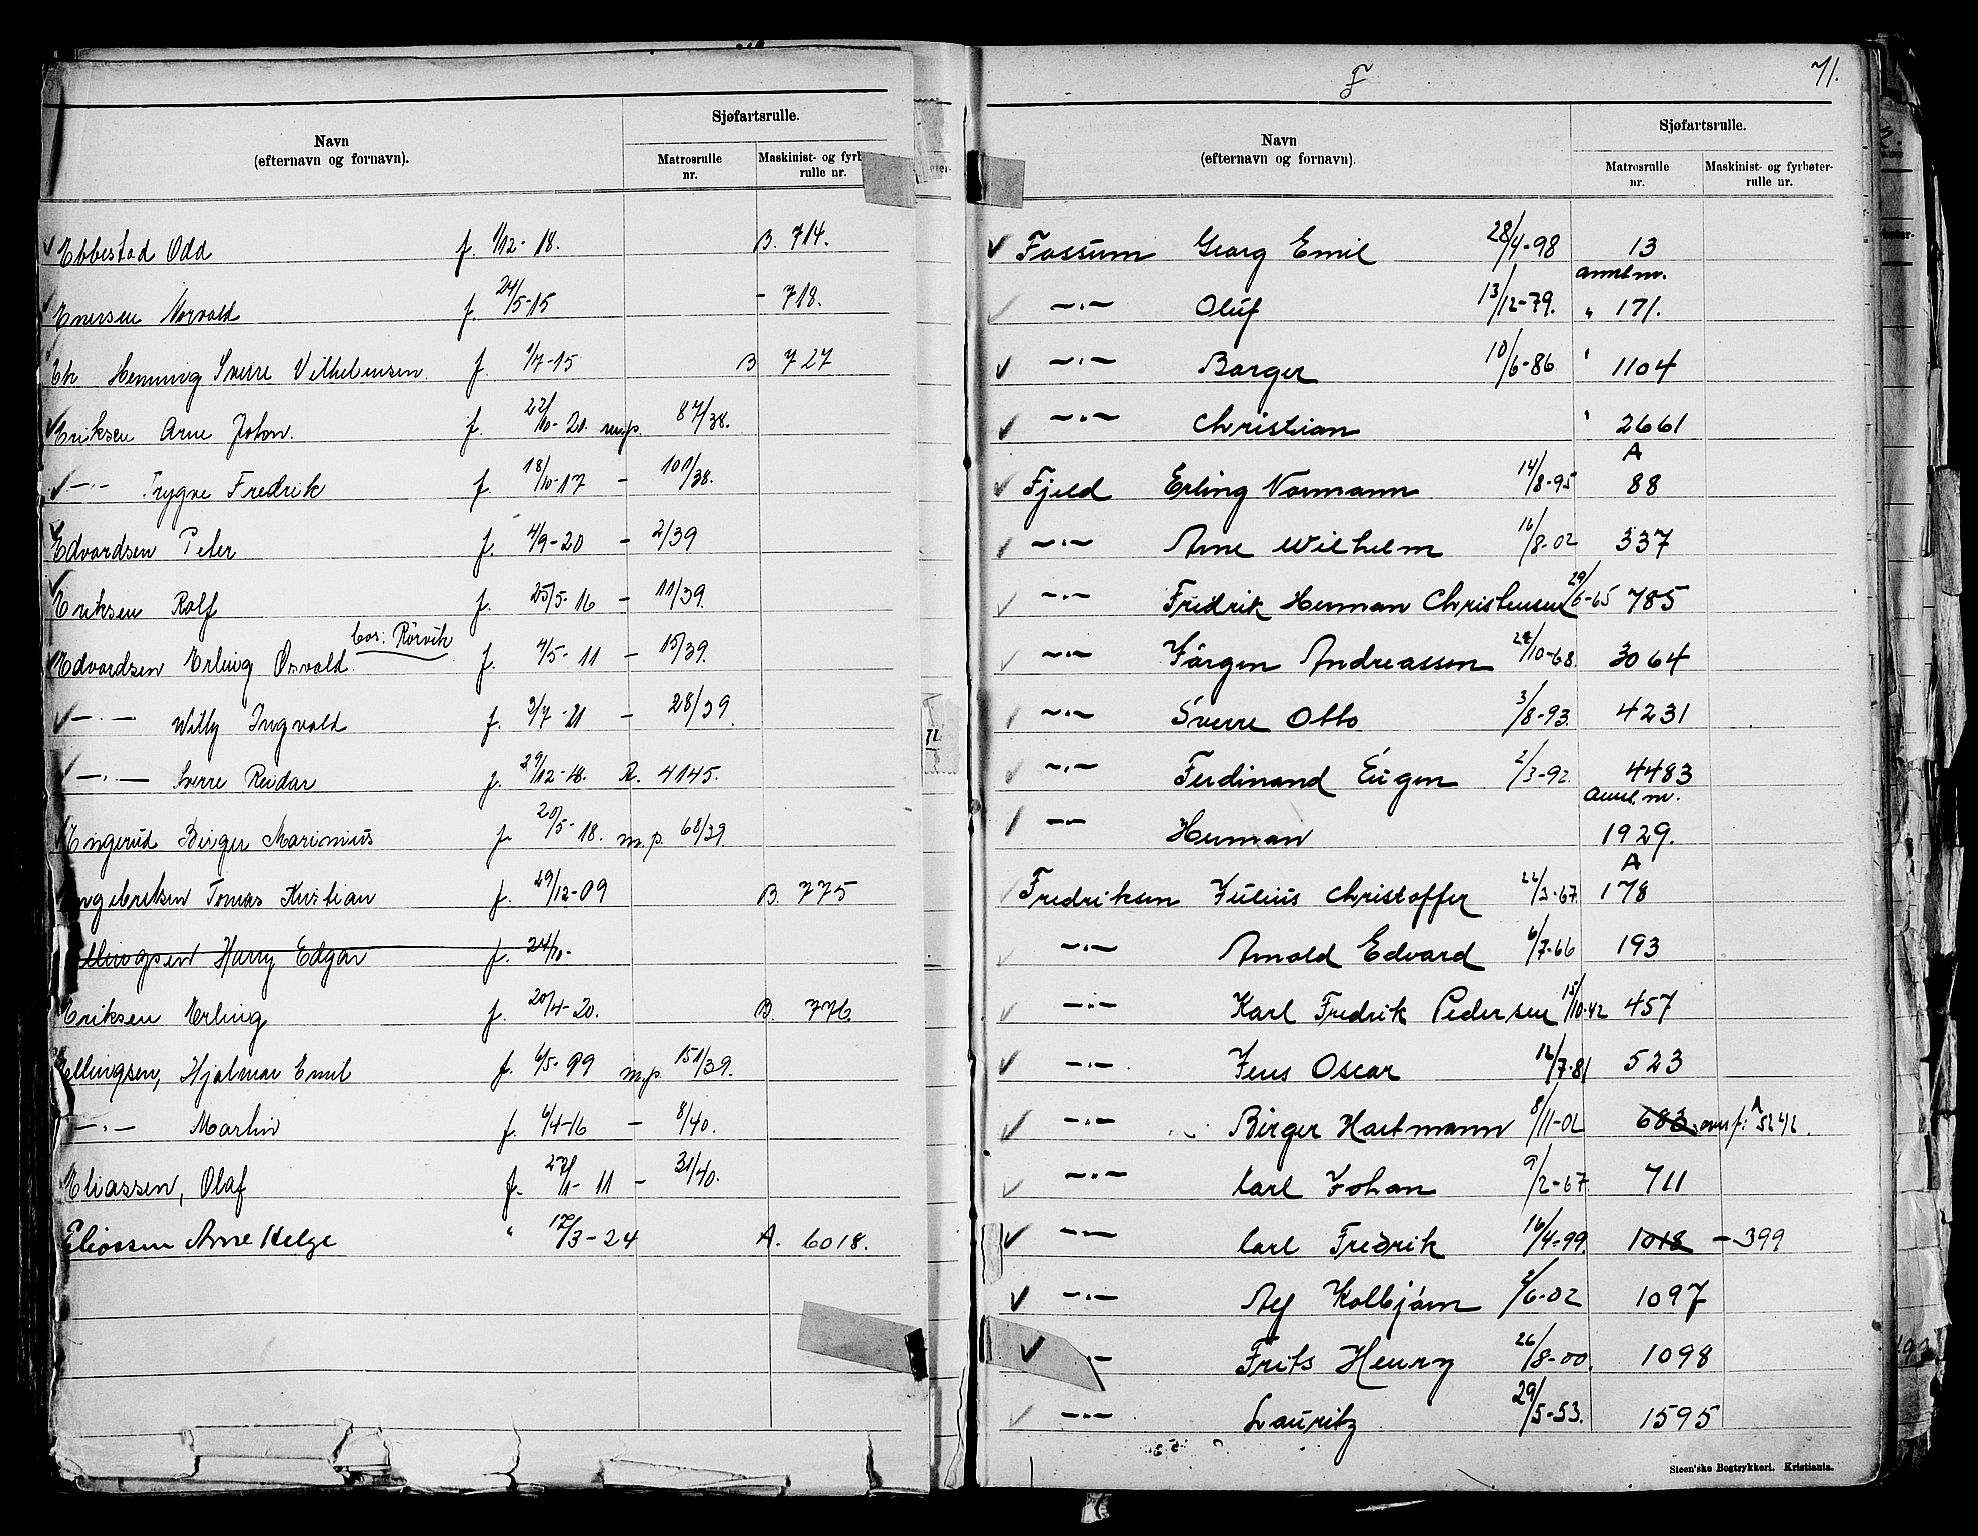 Navn
(efternavn og fornavn).
Sjøfartsrulle.
Matrosrulle
nr.
Maskinist- og fyrbø
rulle nr.
Ebbestad Odd f. 1/12-18. B. 714.
Enersen Norvald f. 24/5-15 - 718.
Ek Henning Sverre Vilhelmsen. f. 1/7-15 B 727
Eriksen Arne Johan. f. 22/10-20. m.p. 87/38.
-"- Trygve Fredrik f. 18/10-17 - 101/38.
Edvardsen Peter f. 4/9-20 - 2/39
Eriksen Rolf f. 25/5-16 - 11/39.
bos: Rörvik
Edvardsen Erling Osvald f. 4/5-11 - 15/39.
-"- Willy Ingvald f. 3/7-21 - 28/39.
-"- Sverre Reidar f. 29/12-18. A. 4145.
Engerud Birger Marinius f. 20/5-18. m.p. 68/39.
Engebriksen Tomas Kristian f. 29/12-09 B. 775
Ellingsen Harry Edgar f. 24/10-
Eriksen Erling f. 20/4-20. B. 776.
Ellingsen, Hjalmar Emil f. 6/5-99 m.p. 151/39.
-"- Martin f. 6/4-16 - 8/40.
Eliassen, Olaf f. 11-11 - 31/40.
Eliassen Arne Helge " 17/3-24 A. 6018.
F
71.
Navn
(efternavn og fornavn).
Sjøfartsrulle.
Matrosrulle
nr.
Maskinist- og fyrbøter-
rulle nr.
Fossum Georg Emil 28/4-98 13
annl.nr.
-"- Oluf 13/12-79. " 171.
-"- Borger 10/6-86 " 1104
-"- Christian " 2661
A
Fjeld Erling Normann 14/8-95 88
-"- Arne Wilhelm 16/8-02 337
-"- Fredrik Herman Christensen 29/6-65 785
-"- Jörgen Andreassen 24/10-68. 3064
-"- Sverre Otto 3/8-93. 4231
-"- Ferdinand Eugen 2/3-92. 4483
annl.nr.
-"- Herman 1929.
A
Fredriksen Julius Christoffer 22/3-67. 178
-"- Arnold Edvard 6/7-66 193
-"- Karl Fredrik Pedersen 15/10-42 457
-"- Jens Oscar 16/7-81 523
-"- Birger Hartmann 8/11-02 683 overf: A 5242.
-"- Carl Johan 9/2-67. 711
-"- Carl Fredrik 16/4-99. 1018 - 399
-"- Alf Kolbjörn 2/6-02 1097
- Frits Henry 26/8-00. 1098
-"- Lauritz 29/5-53. 1595
Steen'ske Bogtrykkeri. Kristiania.